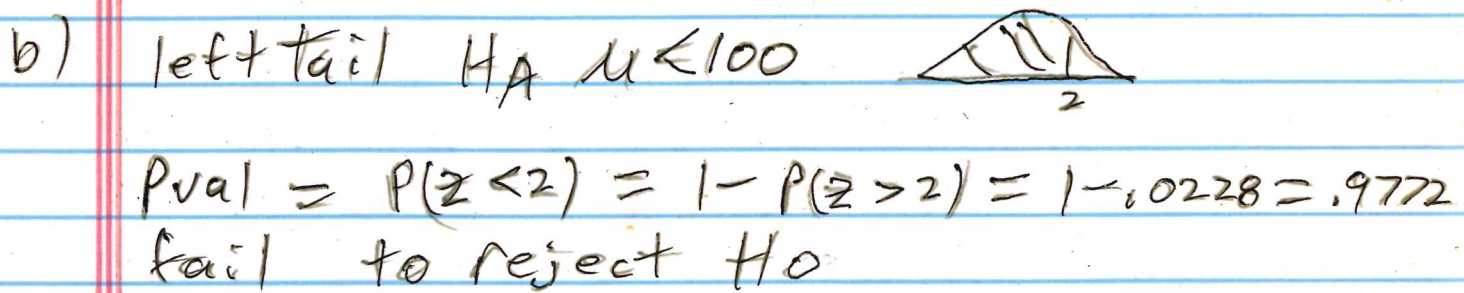 b) left tail HA μ<100
2
Pval = P(z<2) = 1-P(z>2) = 1-.0228=.9772
fail to reject Ho